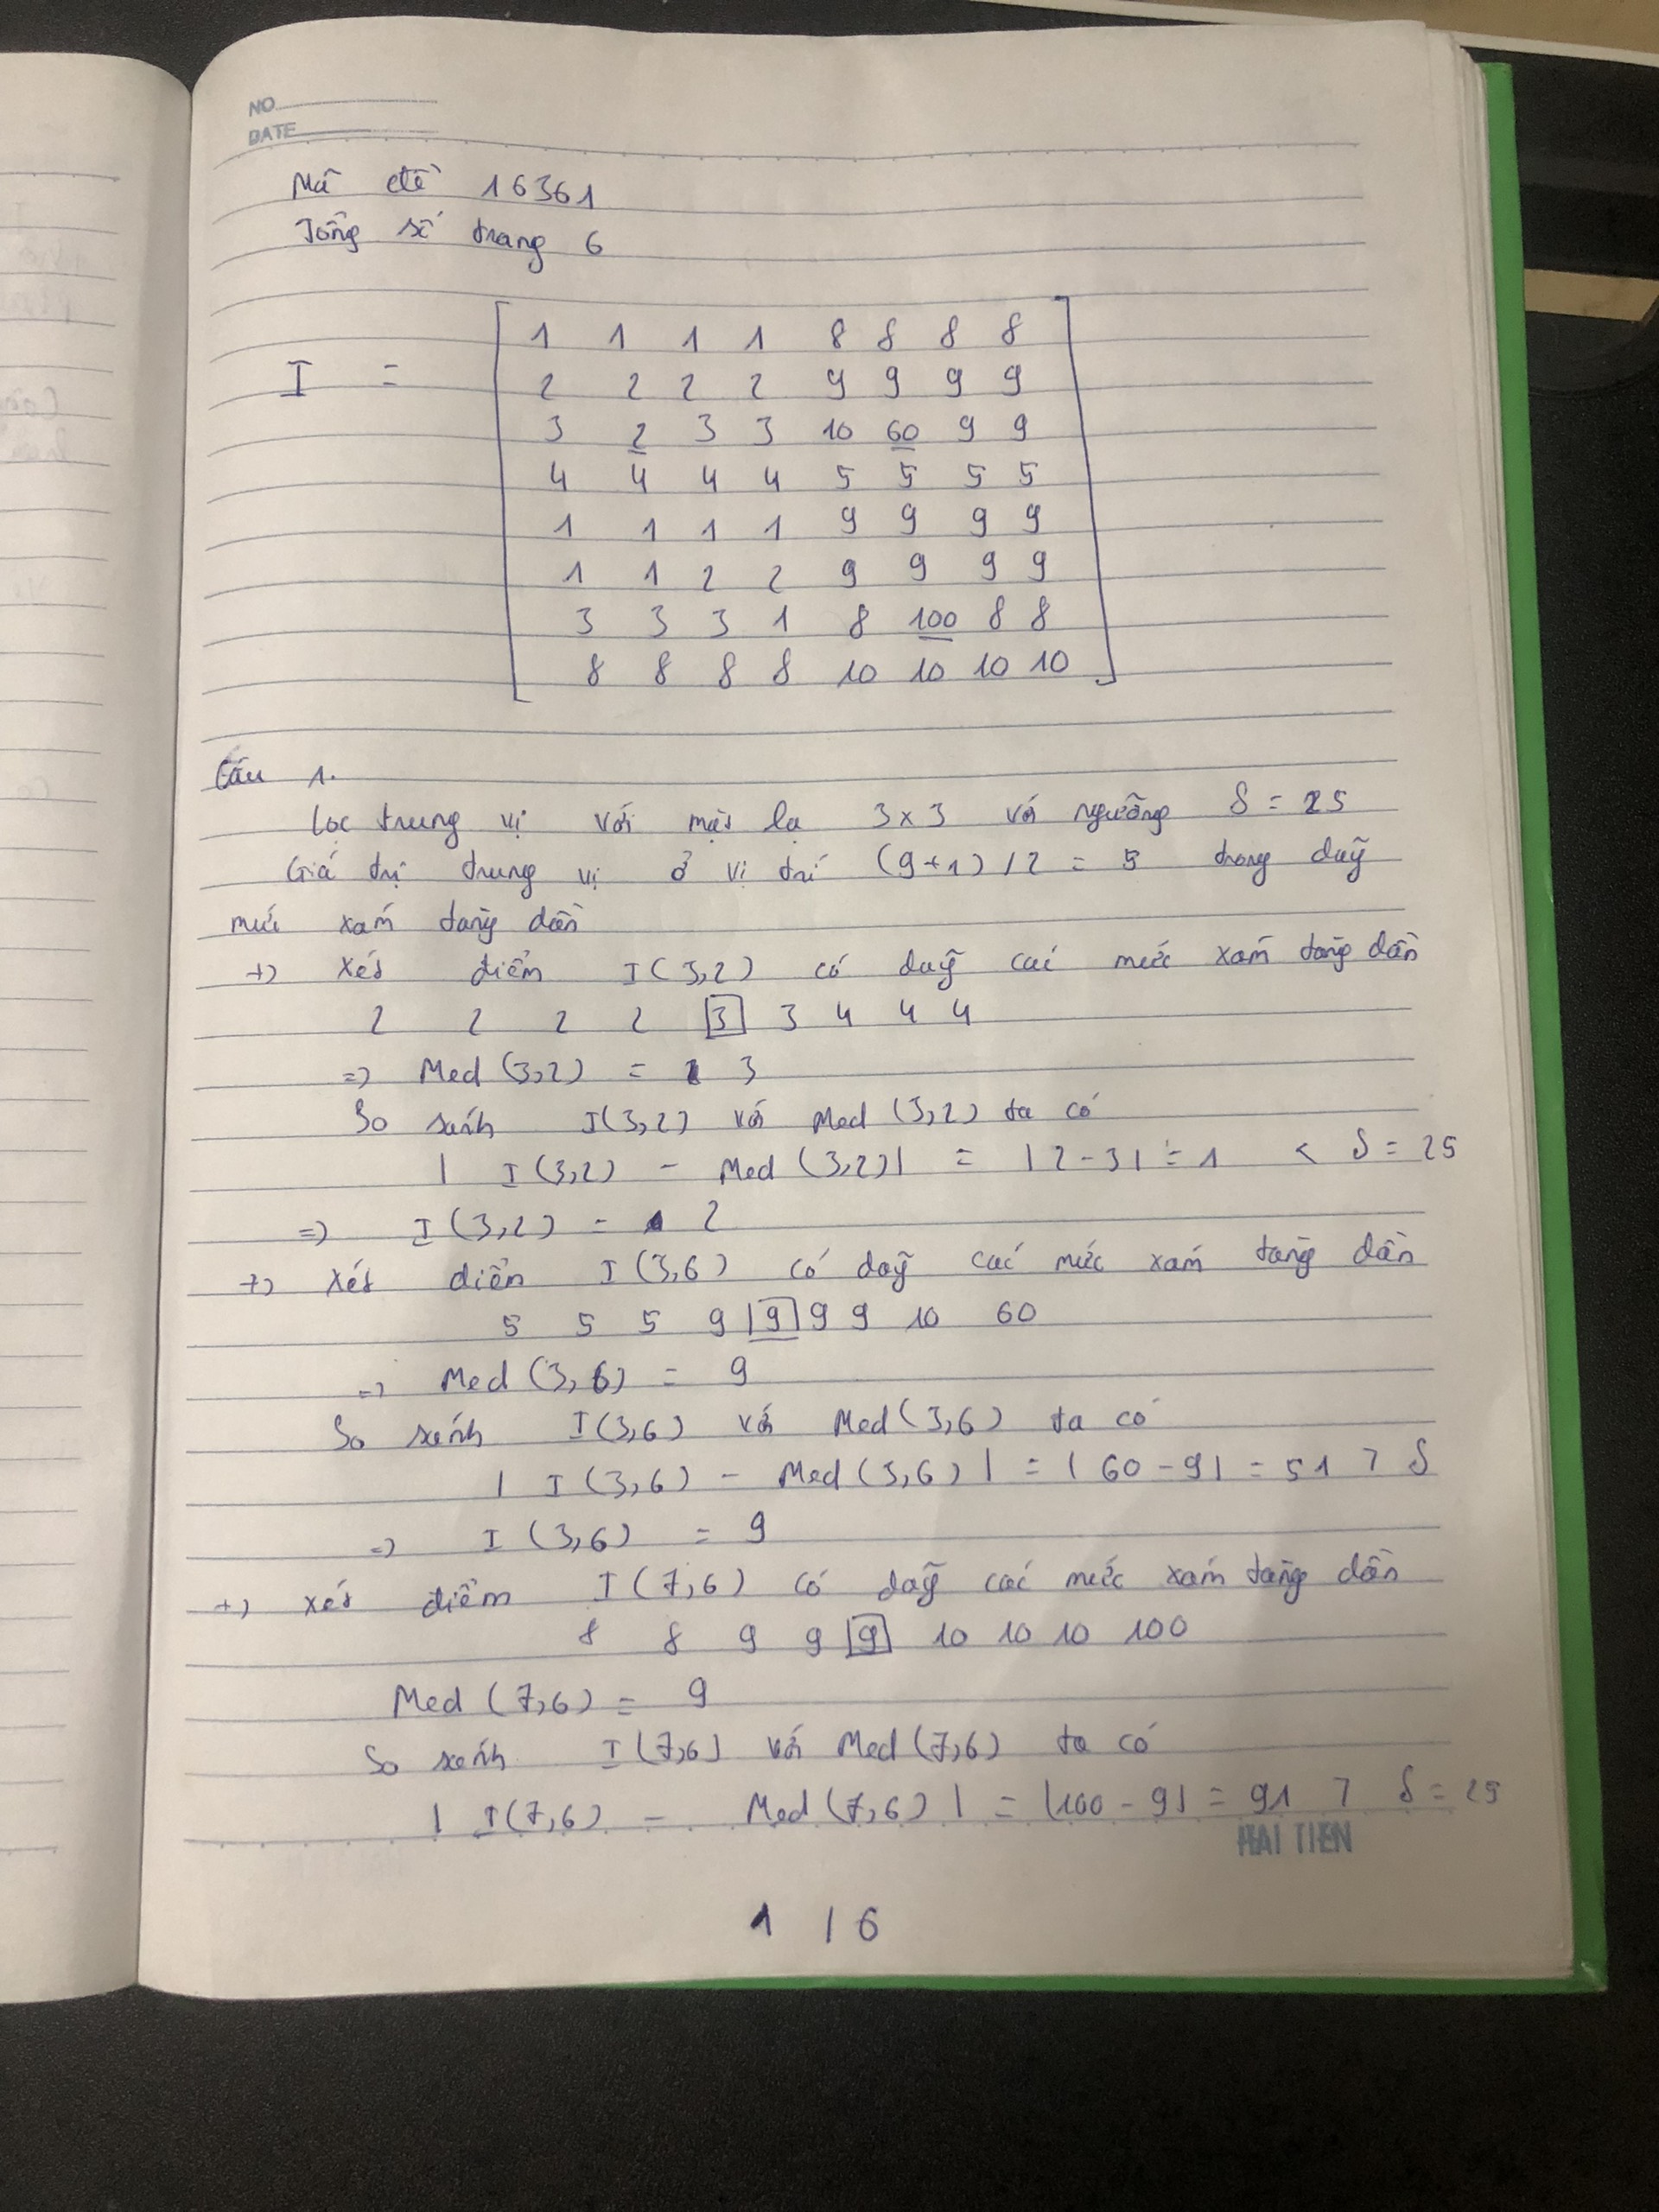 NO
DATE
Mã đề 16361
Tổng số trang 6
1 1 1 1 8 8 8 8
I = 2 2 2 2 9 9 9 9
3 2 3 3 10 60 9 9
4 4 4 4 5 5 5 5
1 1 1 1 9 9 9 9
1 1 2 2 9 9 9 9
3 3 3 1 8 100 8 8
8 8 8 8 10 10 10 10
Câu 1.
Lọc trung vị với mặt lạ 3x3 với ngưỡng δ = 25
Giá trị trung vị ở vị trí (9+1)/2 = 5 trong dãy
mức xám tăng dần
+) xét điểm I(3,2) có dãy các mức xám tăng dần
2 2 2 2 3 3 4 4 4
=> Med (3,2) = 3
So sánh I(3,2) với Med (3,2) ta có
| I(3,2) - Med (3,2)| = |2-3| = 1 < δ = 25
=> I(3,2) = 2
+) xét điểm I(3,6) có dãy các mức xám tăng dần
5 5 5 9 9 9 9 10 60
=> Med (3,6) = 9
So sánh I(3,6) với Med(3,6) ta có
| I(3,6) - Med(3,6) | = |60-9| = 51 > δ
=> I(3,6) = 9
+) xét điểm I(7,6) có dãy các mức xám tăng dần
8 8 9 9 9 10 10 10 100
Med (7,6) = 9
So sánh I(7,6) với Med(7,6) ta có
| I(7,6) - Med(7,6) | = |100-9| = 91 > δ = 25
HAI TIEN
1 / 6